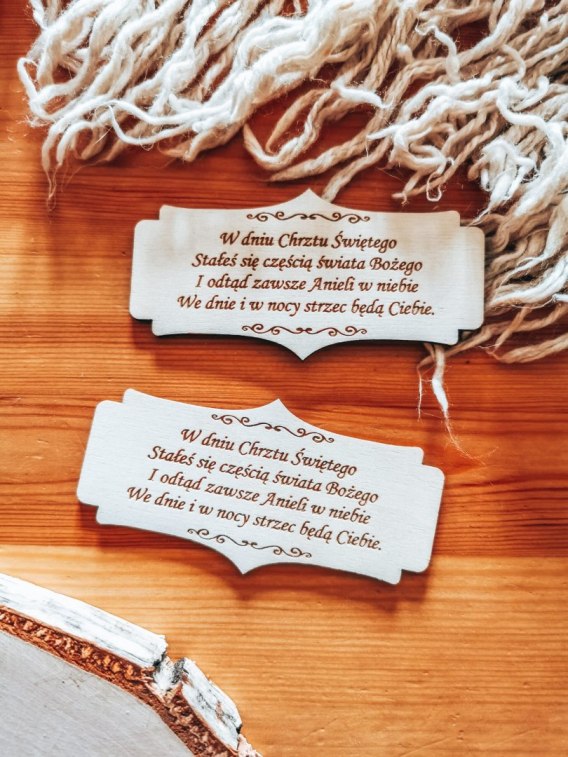 W dniu Chrztu Świętego
Stałeś się częścią świata Bożego
I odtąd zawsze Anieli w niebie
We dnie i w nocy strzec będą Ciebie.
W dniu Chrztu Świętego
Stałeś się częścią świata Bożego
I odtąd zawsze Anieli w niebie
We dnie i w nocy strzec będą Ciebie.